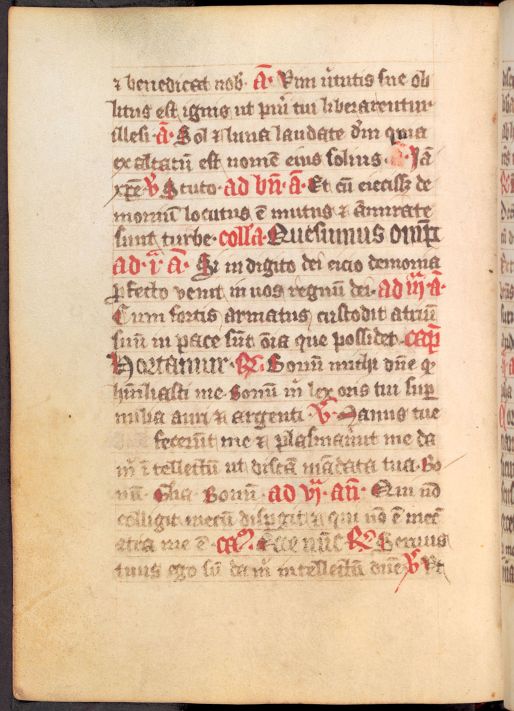 ⁊ benedicat nob. A. Vim ũtutis sue ob
litus est ignis ut pũi tui liberarentur.
illesi. A. Sol ⁊ luna laudate dñm quia
exaltatũ est nomẽ eius solius.
Et cũ eiecisset de
moniũ locutus ẽ mutus ⁊ amirate
sunt turbe. colla. Quesumus omp̃
ad. j. A. Si in digito dei eicio demonia
ꝓfecto venit in uos regnũ dei. ad iij. A.
Cum fortis armatus custodit atriũ
suũ in pace sũt õia que possidet. cap̃
Hortamur. R. Bonũ michi dñe ꝙ
humiliasti me. Bonũ m̃ lex oris tui sup̃
milia auri ⁊ argenti. V. Manus tue
fecerũt me ⁊ plasmauer̃t me da
m̃ ĩtellectũ ut discã mãdata tua. Bo
nũ. Gl̃ia Bonũ. ad vj. añ. Qui nõ
colligit mecũ dispgit ⁊ qui nõ ẽ mec̃
me ẽ. ca. R. Seruus
tuus ego sũ da m̃ intellectũ dñe. V. Vt